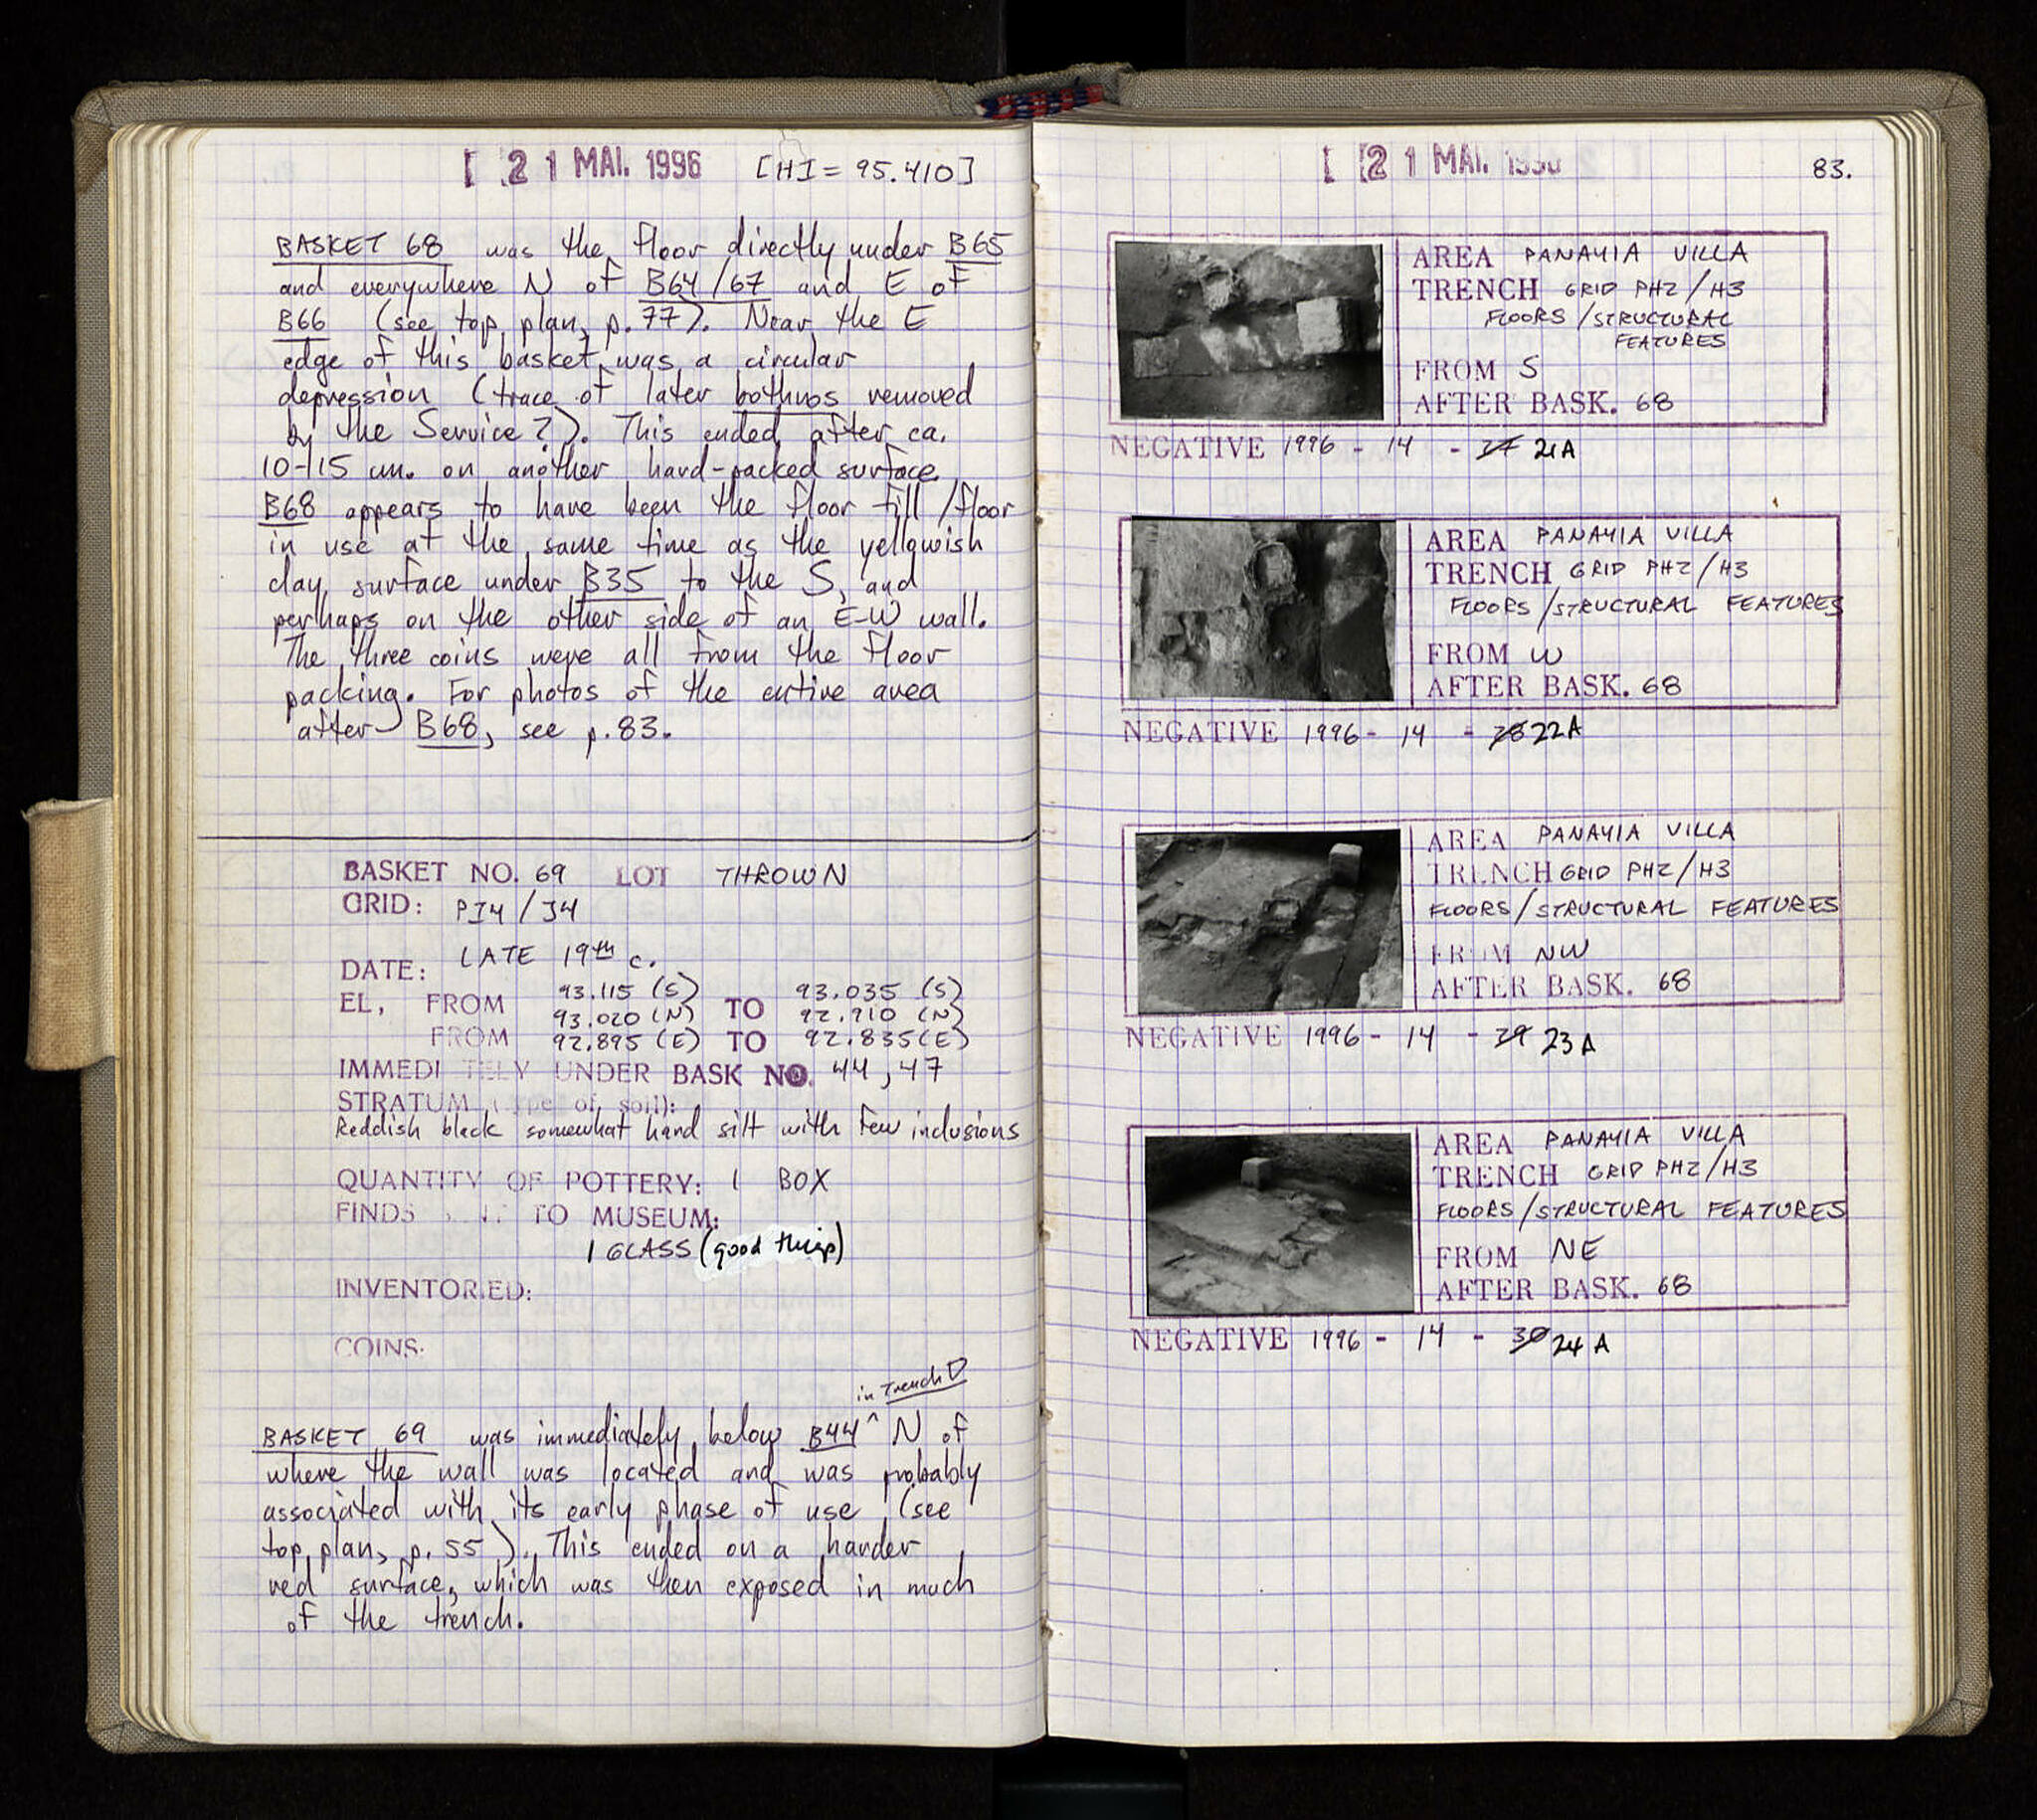 [ 21 MAI. 1996 [HI = 95.410]
BASKET 68 was the floor directly under B65
and everywhere N of B64/67 and E of
B66 (see top plan, p.77). Near the E
edge of this basket was a circular
depression (trace of later bothros removed
by the Service?). This ended after ca.
10-15 cm. on another hard-packed surface.
B68 appears to have been the floor fill/floor
in use at the same time as the yellowish
clay surface under B35 to the S, and
perhaps on the other side of an E-W wall.
The three coins were all from the floor
packing. For photos of the entire area
after B68, see p.83.
BASKET NO. 69 LOT THROWN
GRID: PI4/J4
DATE: LATE 19th c.
EL, FROM 93.115 (S) TO 93.035 (S)
93.020 (N) 92.910 (N)
FROM 92.895 (E) TO 92.835 (E)
IMMEDI TELY UNDER BASK NO. 44, 47
STRATUM (type of soil):
Reddish black somewhat hard silt with few inclusions
QUANTITY OF POTTERY: 1 BOX
FINDS TO MUSEUM:
1 GLASS (good thing)
INVENTORIED:
COINS:
in Trench D
BASKET 69 was immediately below B44 ^ N of
where the wall was located and was probably
associated with its early phase of use (see
top plan, p. 55). This ended on a harder
red surface, which was then exposed in much
of the trench.
[ 21 MAI. 1996 83.
AREA PANAYIA VILLA
TRENCH GRID PH2/H3
FLOORS/STRUCTURAL
FEATURES
FROM S
AFTER BASK. 68
NEGATIVE 1996 - 14 - 27 21A
AREA PANAYIA VILLA
TRENCH GRID PH2/H3
FLOORS/STRUCTURAL FEATURES
FROM W
AFTER BASK. 68
NEGATIVE 1996 - 14 - 28 22A
AREA PANAYIA VILLA
TRENCH GRID PH2/H3
FLOORS/STRUCTURAL FEATURES
FROM NW
AFTER BASK. 68
NEGATIVE 1996 - 14 - 29 23A
AREA PANAYIA VILLA
TRENCH GRID PH2/H3
FLOORS/STRUCTURAL FEATURES
FROM NE
AFTER BASK. 68
NEGATIVE 1996 - 14 - 30 24A